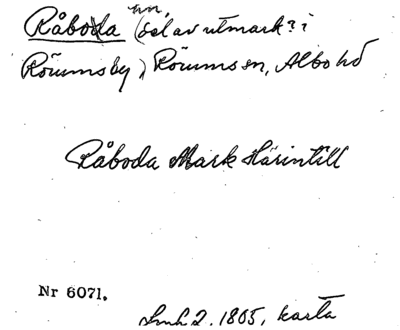 Råboda tvn.
(del av utmark? i
Rörums by) Rörums sn, Albo hd
Råboda Mark Härintill
Nr 6071.
1805, karta